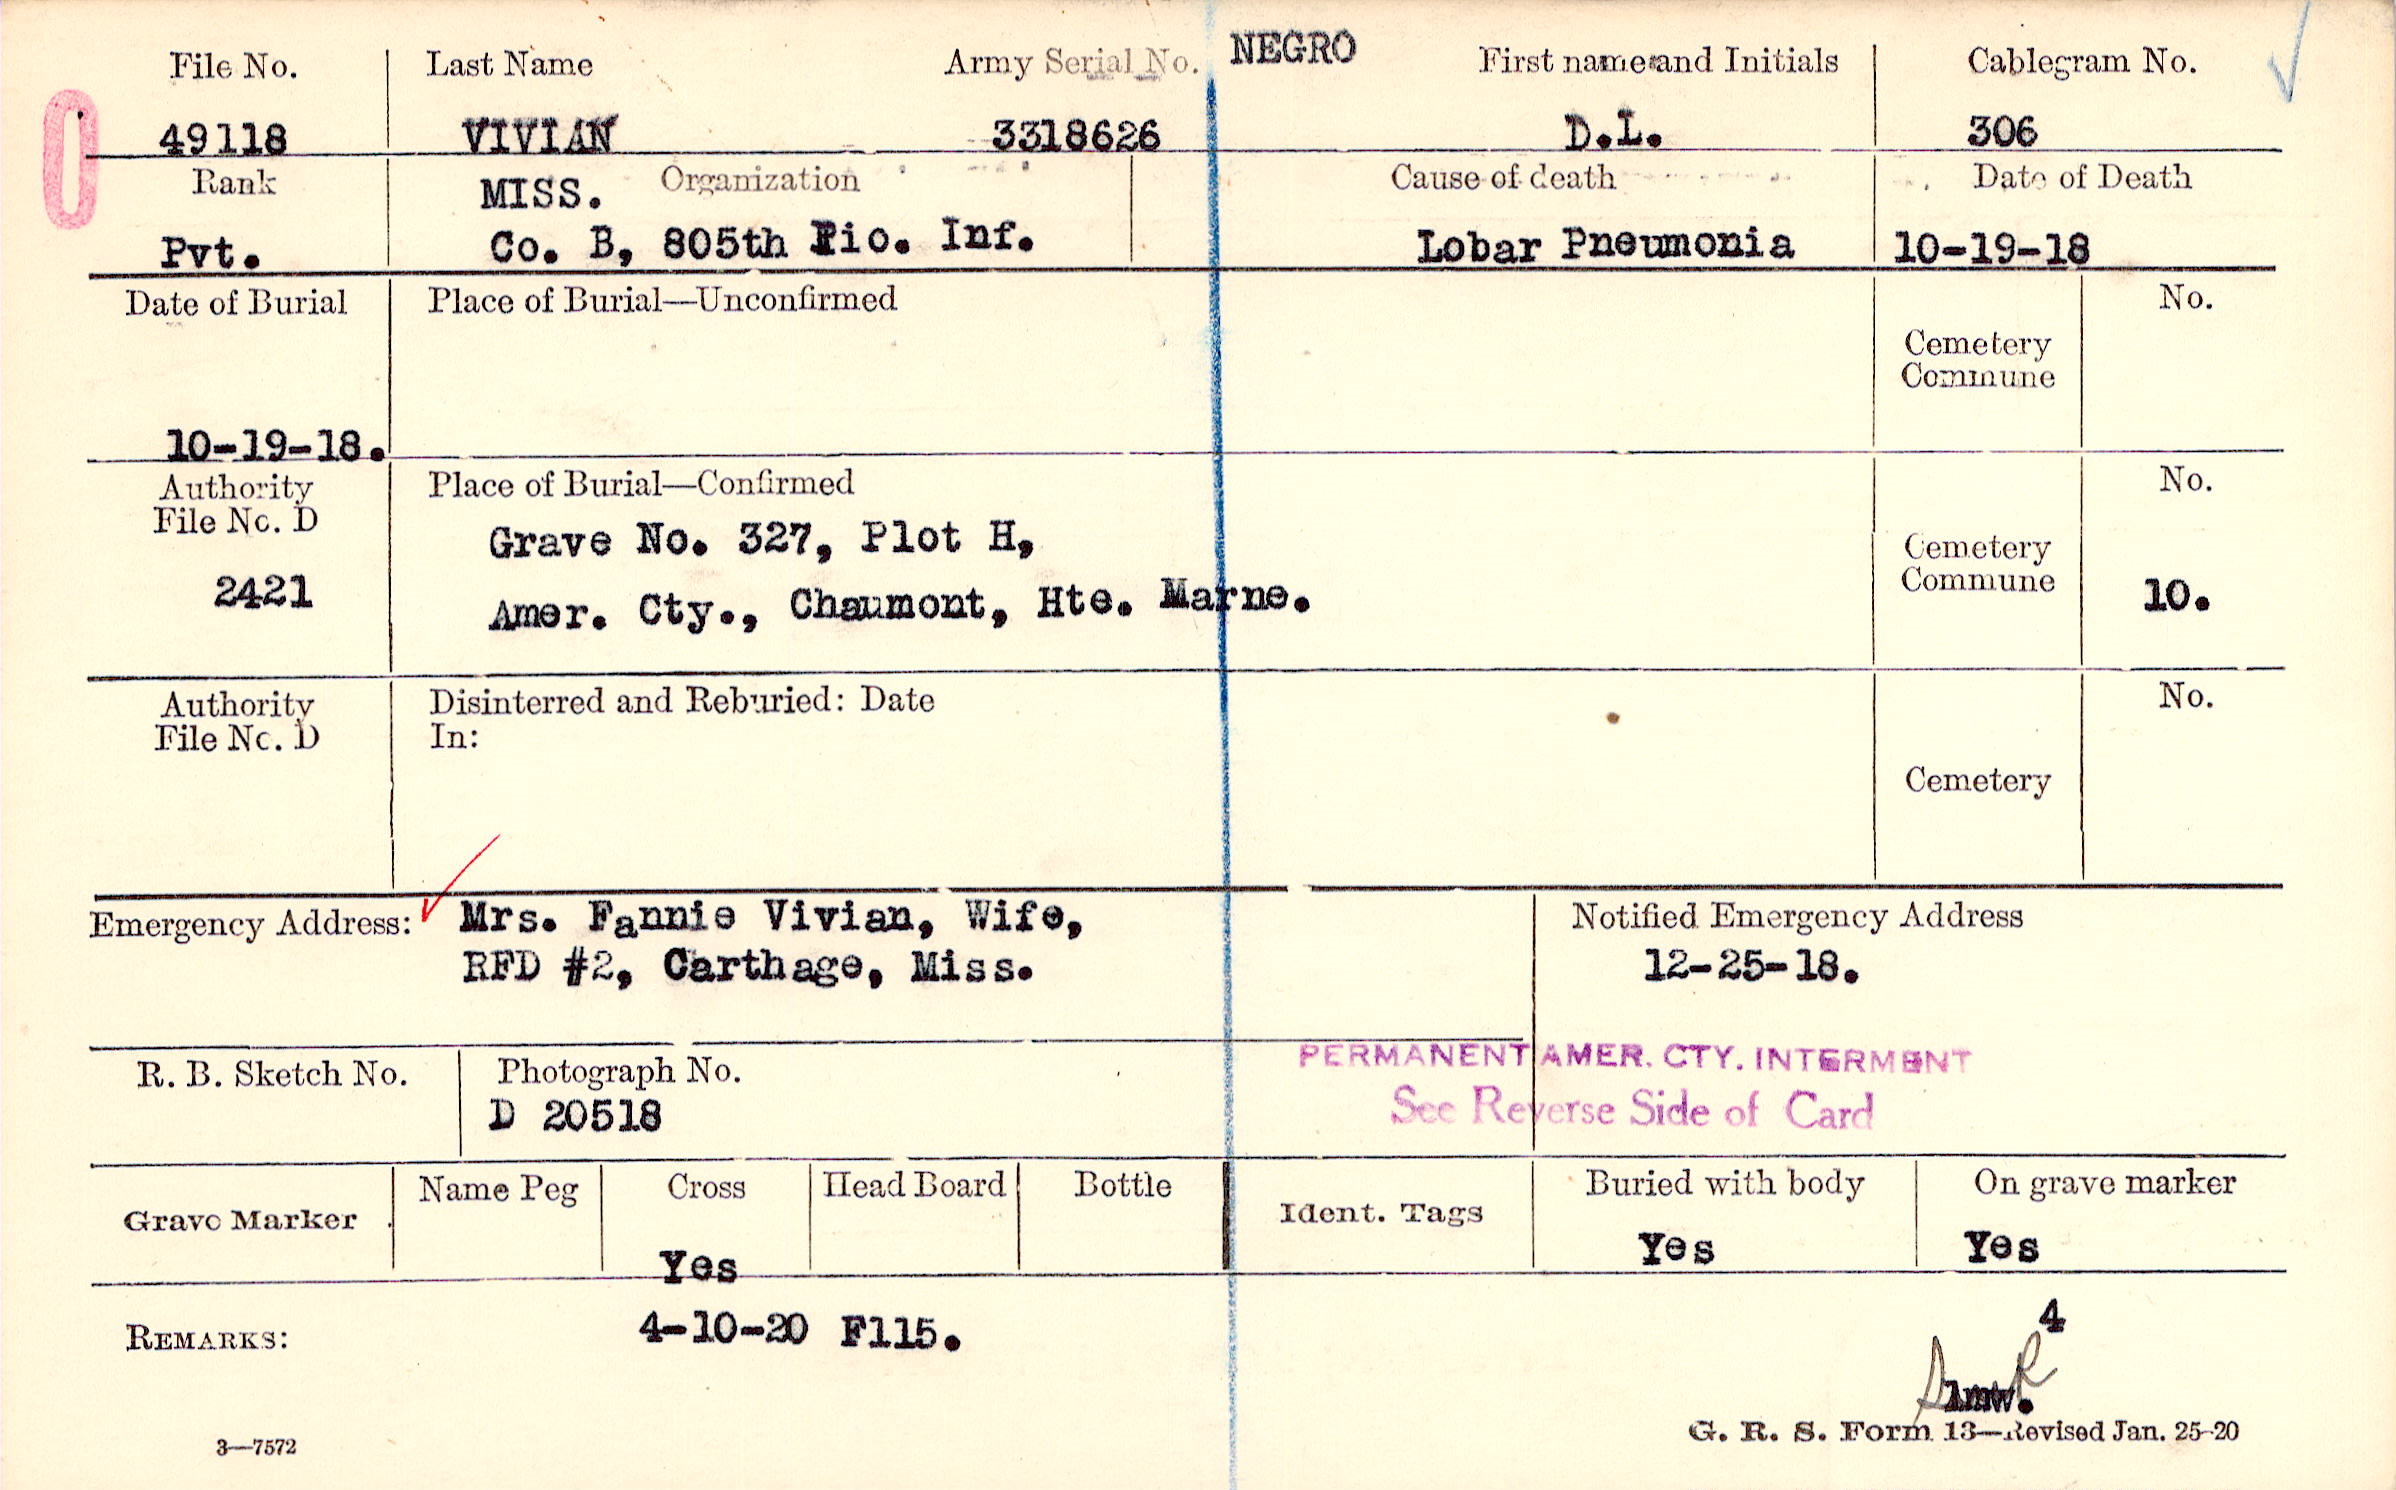 File No. Last Name Army Serial No. NEGRO First name and Initials Cablegram No.
49118 VIVIAN 3318626 D.L. 306
Rank MISS. Organization Cause of death Date of Death
Pvt. Co. B, 805th Pio. Inf. Lobar Pneumonia 10-19-18
Date of Burial Place of Burial—Unconfirmed No.
Cemetery
Commune
10-19-18.
Authority Place of Burial—Confirmed No.
File No. D
Grave No. 327, Plot H, Cemetery
2421 Amer. Cty., Chaumont, Hte. Marne. Commune 10.
Authority Disinterred and Reburied: Date No.
File No. D In:
Cemetery
Emergency Address: Mrs. Fannie Vivian, Wife, Notified Emergency Address
RFD #2, Carthage, Miss. 12-25-18.
PERMANENT AMER. CTY. INTERMENT
R. B. Sketch No. Photograph No.
D 20518 See Reverse Side of Card
Grave Marker Name Peg Cross Head Board Bottle Ident. Tags Buried with body On grave marker
Yes Yes Yes
4
REMARKS: 4-10-20 F115.
lmw.
G. R. S. Form 13—Revised Jan. 25-20
3—7572